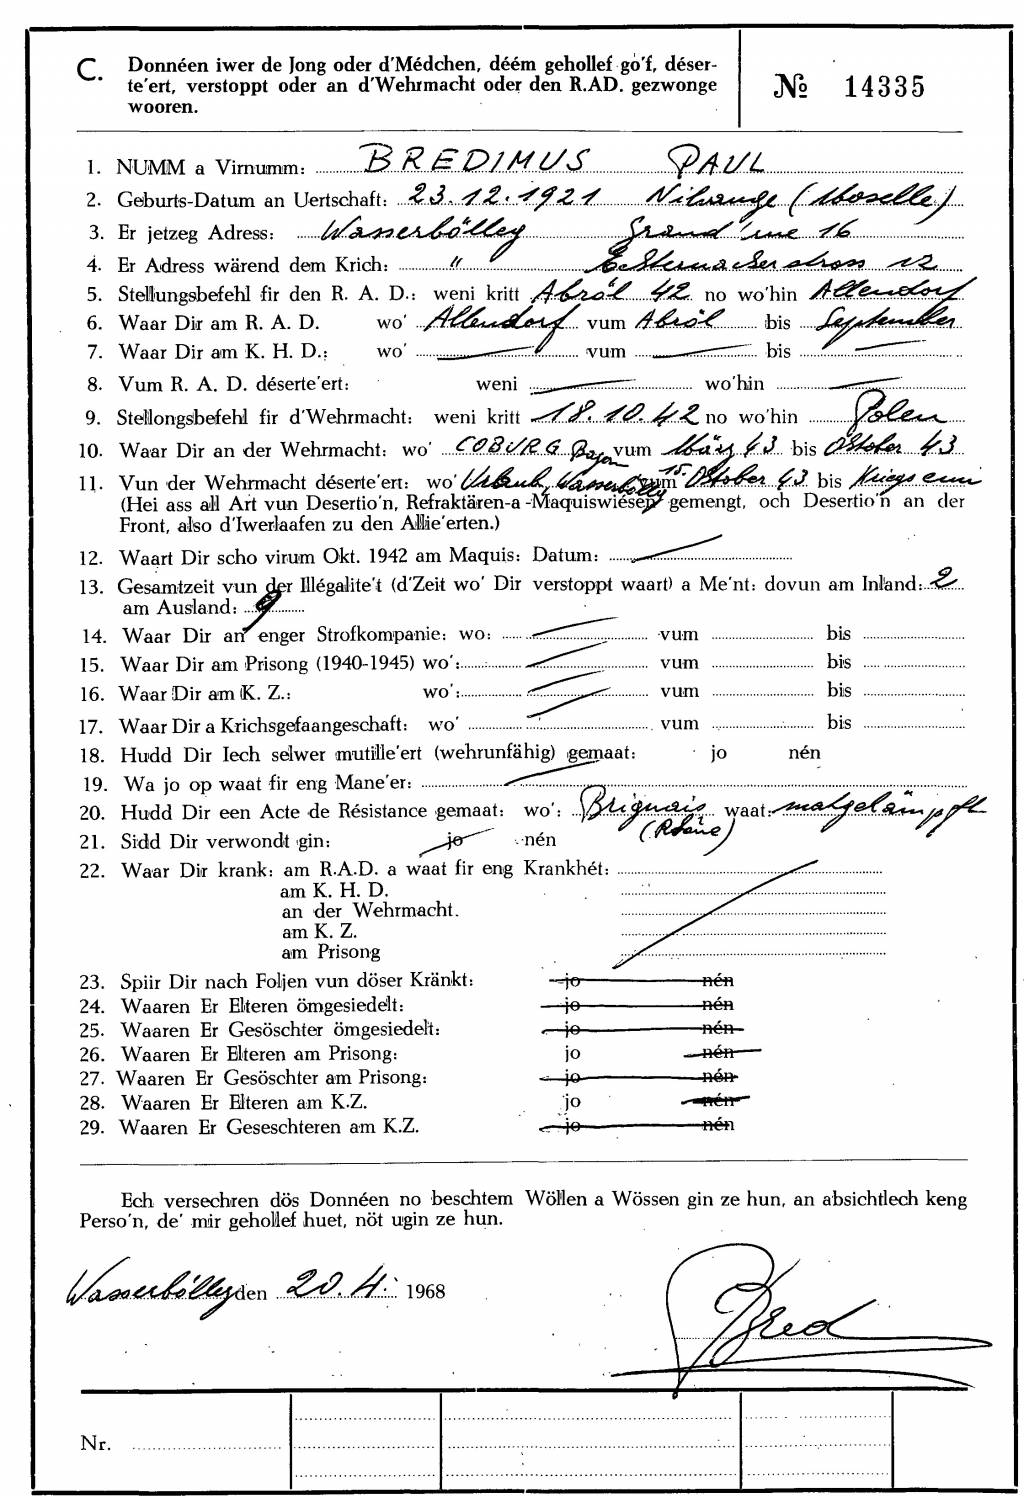 C. Donnéen iwer de Jong oder d'Médchen, déém gehollef go'f, déser-
te'ert, verstoppt oder an d'Wehrmacht oder den R.AD. gezwonge
wooren.
№ 14335
1. NUMM a Virnumm: BREDIMUS PAUL
2. Geburts-Datum an Uertschaft: 23.12.1921 Nilvange (Moselle)
3. Er jetzeg Adress: Wasserbölleg Grand'rue 16
4. Er Adress wärend dem Krich: " Echternacherstross 12
5. Stellungsbefehl fir den R. A. D.: weni kritt Abröl 42 no wo'hin Allendorf
6. Waar Dir am R. A. D. wo' Allendorf vum Abröl bis September
7. Waar Dir am K. H. D.: wo' vum bis
8. Vum R. A. D. déserte'ert: weni wo'hin
9. Stellongsbefehl fir d'Wehrmacht: weni kritt 18.10.42 no wo'hin Polen
10. Waar Dir an der Wehrmacht: wo' COBURG Bayern vum März 43 bis Oktober 43
11. Vun der Wehrmacht déserte'ert: wo' Urlaub, Wasserbölleg vum 15. Oktober 43 bis Kriegsenn
(Hei ass all Art vun Desertio'n, Refraktären-a-Maquiswiésen gemengt, och Desertio'n an der
Front, also d'Iwerlaafen zu den Allie'erten.)
12. Waart Dir scho virum Okt. 1942 am Maquis: Datum:
13. Gesamtzeit vun der Illégalite't (d'Zeit wo' Dir verstoppt waart) a Me'nt: dovun am Inland: 2
am Ausland: 9
14. Waar Dir an enger Strofkompanie: wo: vum bis
15. Waar Dir am Prisong (1940-1945) wo': vum bis
16. Waar Dir am K. Z.: wo': vum bis
17. Waar Dir a Krichsgefaangeschaft: wo' vum bis
18. Hudd Dir Iech selwer mutille'ert (wehrunfähig) gemaat: jo nén
19. Wa jo op waat fir eng Mane'er:
20. Hudd Dir een Acte de Résistance gemaat: wo': Brignais waat: matgekämpft
(Rhône)
21. Sidd Dir verwondt gin: jo nén
22. Waar Dir krank: am R.A.D. a waat fir eng Krankhét:
am K. H. D.
an der Wehrmacht.
am K. Z.
am Prisong
23. Spiir Dir nach Foljen vun döser Kränkt: jo nén
24. Waaren Er Elteren ömgesiedelt: jo nén
25. Waaren Er Gesöschter ömgesiedelt: jo nén
26. Waaren Er Elteren am Prisong: jo nén
27. Waaren Er Gesöschter am Prisong: jo nén
28. Waaren Er Elteren am K.Z. jo nén
29. Waaren Er Geseschteren am K.Z. jo nén
Ech versechren dös Donnéen no beschtem Wöllen a Wössen gin ze hun, an absichtlech keng
Perso'n, de' mir gehollef huet, nöt ugin ze hun.
Wasserbölleg den 20.4. 1968
Bred
Nr.